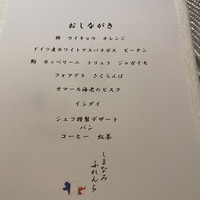 おしながき
鰆 ウイキョウ オレンジ
ドイツ産ホワイトアスパラガス ピータン
鮑 カッペリーニ トリュフ ジャガイモ
フォアグラ さくらんぼ
オマール海老のビスク
イシダイ
シェフ特製デザート
パン
コーヒー 紅茶
しまなみ
ふれんち